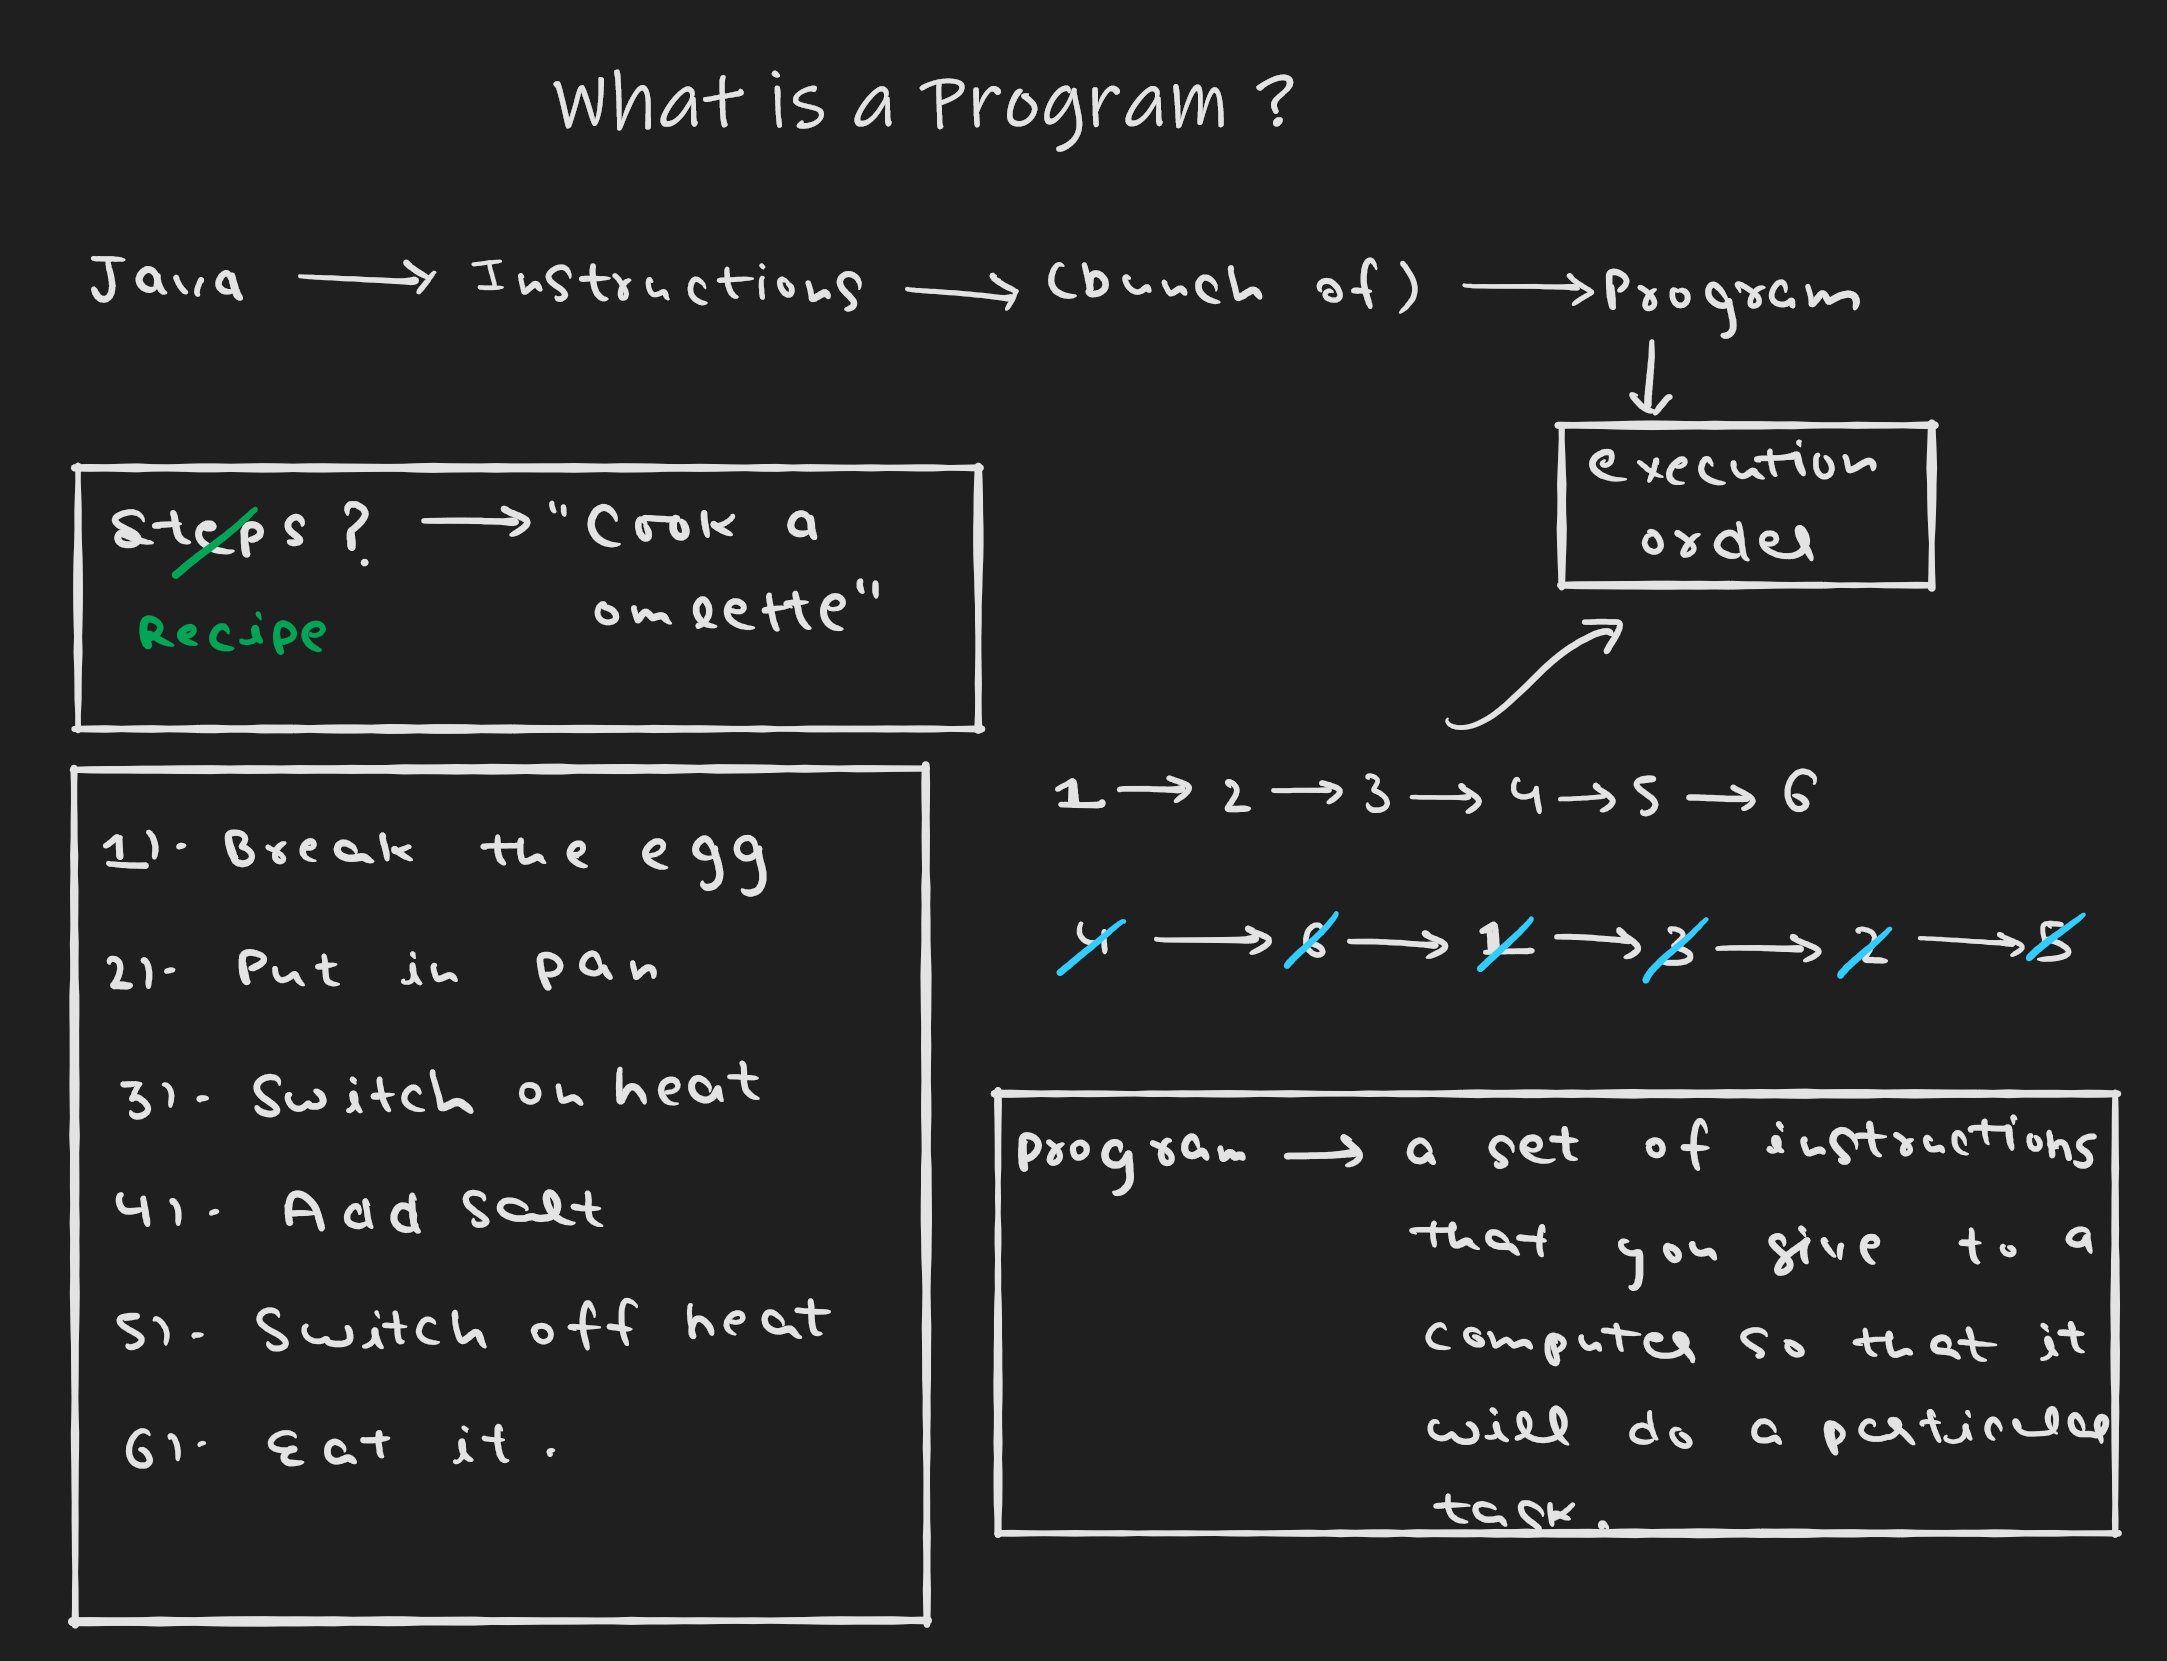 What is a Program ?
Java → Instructions → (bunch of) → Program
execution
order
Steps ? → "Cook a
omlette"
Recipe
1 → 2 → 3 → 4 → 5 → 6
4 → 6 → 1 → 3 → 2 → 5
1)· Break the egg
2)· Put in pan
3)· Switch on heat
4)· Add salt
5)· Switch off heat
6)· Eat it.
Program → a set of instructions
that you give to a
computer so that it
will do a particular
task.